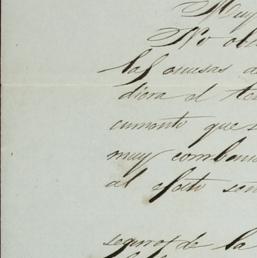 Muy
No ob
las causas a
diera el te
cumento que
muy conbeni
al efeto sen
seguros de la